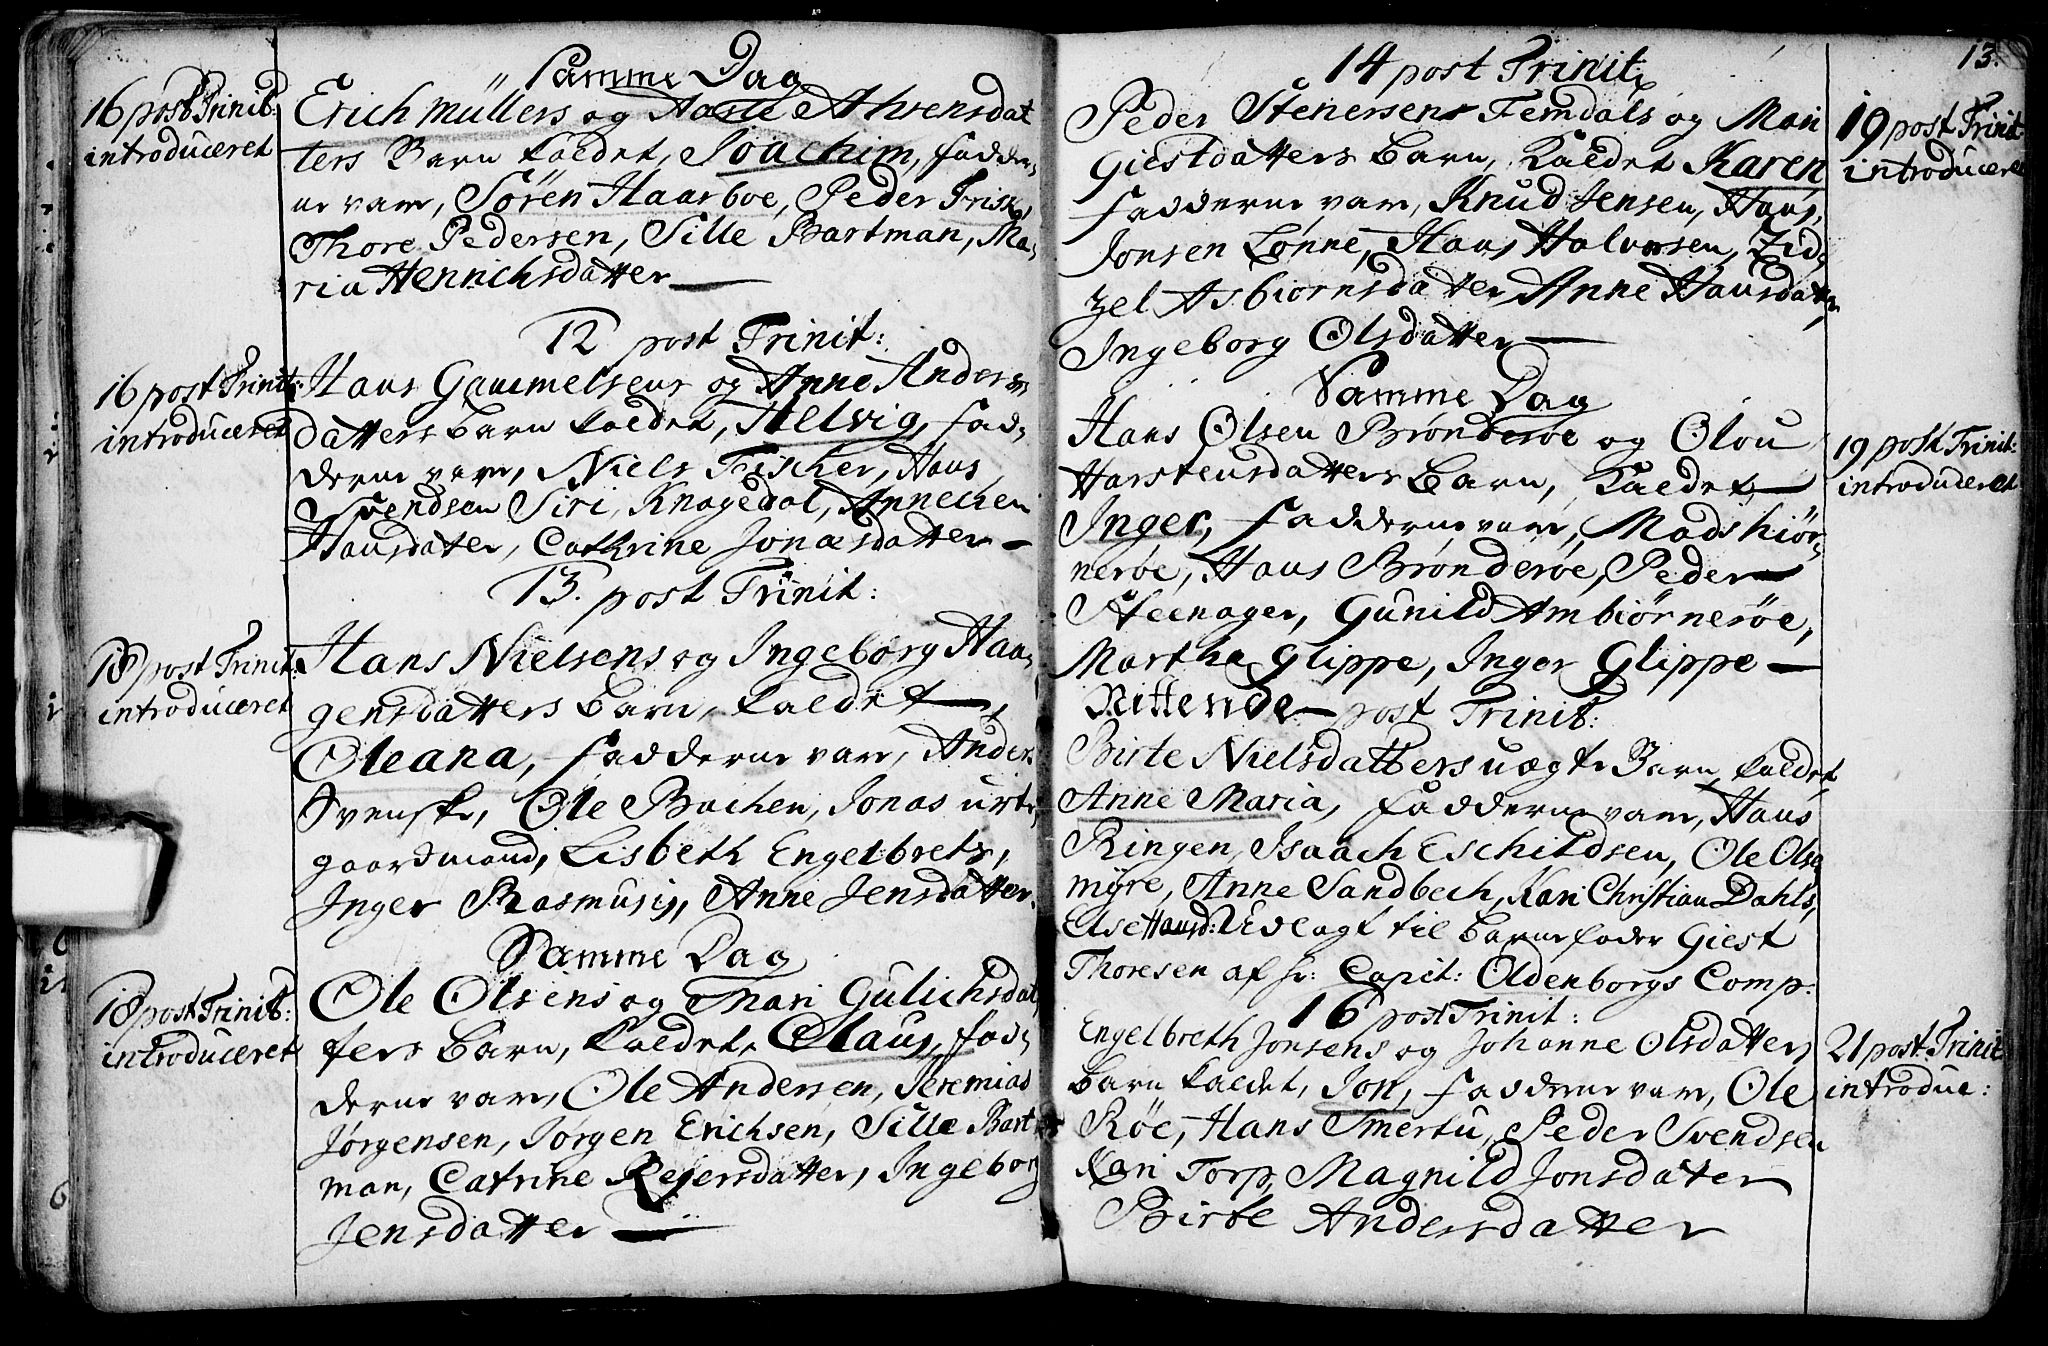 Samme Dag
16 post Trinit:
introduceret
Erich Müllers og Aasle Ahrensdat
ters Barn kaldet, Joachim, fadder,
ne vare, Søren Haarboe, Peder Frisk,
Thore Pedersen, Sille Bartman, Ma,
ria Henrichsdatter
12 post Trinit:
16 post Trinit:
introduceret
Hans Gammelsens og Anne Anders
datters Barn kaldet, Helvig, fad,
derne vare, Niels Fischer, Hans
Svendsen Siri, Knagedal, Annechen
Hansdater, Cathrine Jonæsdatter
13. post Trinit:
18 post Trinit:
introduceret
Hans Nielsens og Ingeborg Haa,
gensdatters Barn, kaldet
Oleana, fadderne vare, Anders
Svenske, Ole Bachen, Jonas urte,
gaardmand, Lisbeth Engelbrets,
Inger Rasmusis, Anne Jensdatter.
Samme Dag
18 post Trinit:
introduceret
Ole Olsens og Mari Gulichsdat,
ters Barn, kaldet, Claus, fad,
derne vare, Ole Andersen, Jeremias
Jørgensen, Jørgen Erichsen, Sille Bart
man, Catrine Rejersdatter, Ingeborg
Jensdatter
13.
14 post Trinit:
Peder Stenersens Femdals og Mari
Giestdatters Barn, Kaldet Karen
fadderne vare, Knud Jensen, Hans,
Jonsen Lønne, Hans Halvorsen, Zid,
zel Asbiornsdatter, Anne Hansdatter,
Ingeborg Olsdatter
19 post Trinit
introduceret
Samme Dag
Hans Olsen Brønderøe og Olou
Harstensdatters Barn, Kaldet
Inger, fadderne vare, Mads hiør,
nerøe, Hans Brønderøe, Peder
Steenager, Gunild Ambiørnerøe,
Martha Glippe, Inger Glippe
19 post Trinit:
introduceret
Nittende post Trinit:
Birte Nielsdatters uægte Barn, kaldet
Anne Maria, fadderne vare, Hans
Ringen, Isaach Eschildsen, Ole Olse
myre, Anne Sandbech, Kari Christian Dahls,
Else Hansd: Udlagt til Barnefader Giest
Thoresen af hr: Capit: Oldenborgs Comp:
16 post Trinit:
Engelbreth Jonsens og Johanne Olsdatters
Barn kaldet, Jon, fadderne vare, Ole
Røe, Hans Smertu, Peder Svendsen
Kari Torp, Magnild Jonsdater
Birte Andersdatter
21 post Trinit
introduc: